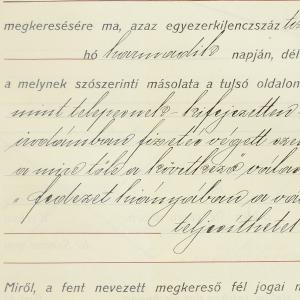 megkeresésére ma, azaz egyezerkilenczszáz
hó harmadik napján, dél
a melynek szószerinti másolata a tulsó oldalon
mint telepemnek kifejezetten
irodámban fizetés végett
a mire tőle a következő vála
„fedezet hiányában a
teljesíthetel
Miről, a fent nevezett megkereső fél jogai